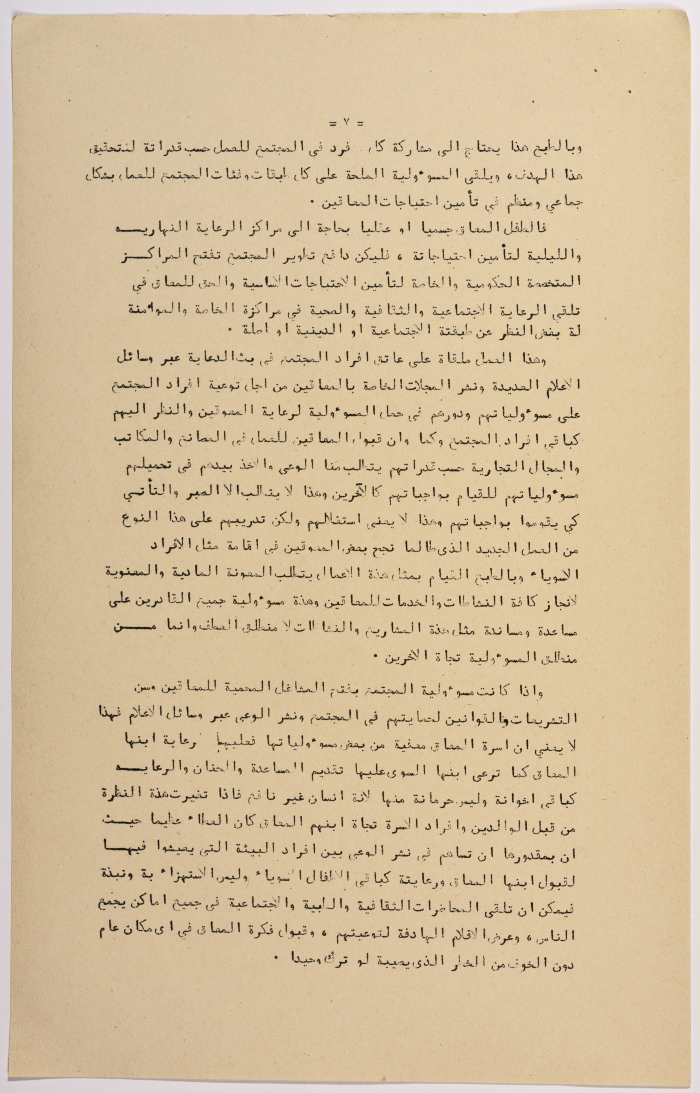 = ٧ =
وبالطبع هذا يحتاج الى مشاركة كل فرد في المجتمع للعمل حسب قدراتة لتحقيق
هذا الهدف ، ويلقى المسوءولية الملحة على كل طبقات وفئات المجتمع للعمل بشكل
جماعي ومنظم في تأمين احتياجات المعاقين .
فالطفل المعاق جسميا او عقليا بحاجة الى مراكز الرعاية النهاريــه
والليلية لتأمين احتياجاتة ، فليكن دافع تطوير المجتمع تفتح المراكــز
المتخصصة الحكومية والخاصة لتأمين الاحتياجات الاساسية والحق للمعاق في
تلقي الرعاية الاجتماعية والثقافية والصحية في مراكزة الخاصة والموءمنة
لة بغض النظر عن طبقتة الاجتماعية او الدينية او اصلة .
وهذا العمل ملقاة على عاتق افراد المجتمع في بث الدعاية عبر وسائل
الاعلام العديدة ونشر المجلات الخاصة بالمعاقين من اجل توعية افراد المجتمع
على مسوءولياتهم ودورهم في حمل المسوءولية لرعاية المعوقين والنظر اليهم
كباقي افراد المجتمع وكما وان قبول المعاقين للعمل في المصانع والمكاتب
والمجال التجارية حسب قدراتهم يتطلب منا الوعي والاخذ بيدهم في تحميلهم
مسوءولياتهم للقيام بواجباتهم كالآخرين وهذا لا يتطلب الا الصبر والتأنــي
كي يقوموا بواجباتهم وهذا لا يعني استغلالهم ولكن تدريبهم على هذا النوع
من العمل الجديد الذي طالما نجح بعض المعوقين في اقامة مثل الافراد
الاسوياء وبالطبع القيام بمثل هذة الاعمال يتطلب المعونة المادية والمعنوية
لانجاز كافة النشاطات والخدمات للمعاقين وهذة مسوءولية جميع القادرين على
مساعدة ومساندة مثل هذة المشاريع والنشاطات لا منطلق العطف وانما مــن
منطلق المسوءولية تجاة الاخرين .
واذا كانت مسوءولية المجتمع بفتح المشاغل المحمية للمعاقين وسن
التشريعات والقوانين لحمايتهم في المجتمع ونشر الوعي عبر وسائل الاعلام فهذا
لا يعني ان اسرة المعاق معفية من بعض مسوءولياتها فعليها رعاية ابنها
المعاق كما ترعى ابنها السوي عليها تقديم المساعدة والحنان والرعايــه
كباقي اخوانة وليس حرمانة منها لانة انسان غير نافع فاذا تغيرت هذة النظرة
من قبل الوالدين وافراد الاسرة تجاة ابنهم المعاق كان العطاء عظيما حيــث
ان بمقدورها ان تساهم في نشر الوعي بين افراد البيئة التي يعيشوا فيهــا
لقبول ابنها المعاق ورعايتة كباقي الاطفال الاسوياء وليس الاستهزاء بة ونبذة
فيمكن ان تلقى المحاضرات الثقافية والطبية والاجتماعية في جميع اماكن يجمع
الناس ، وعرض الافلام الهادفة لتوعيتهم ، وقبول فكرة المعاق في اى مكان عام
دون الخوف من الخطر الذي يصيبة لو ترك وحيدا .